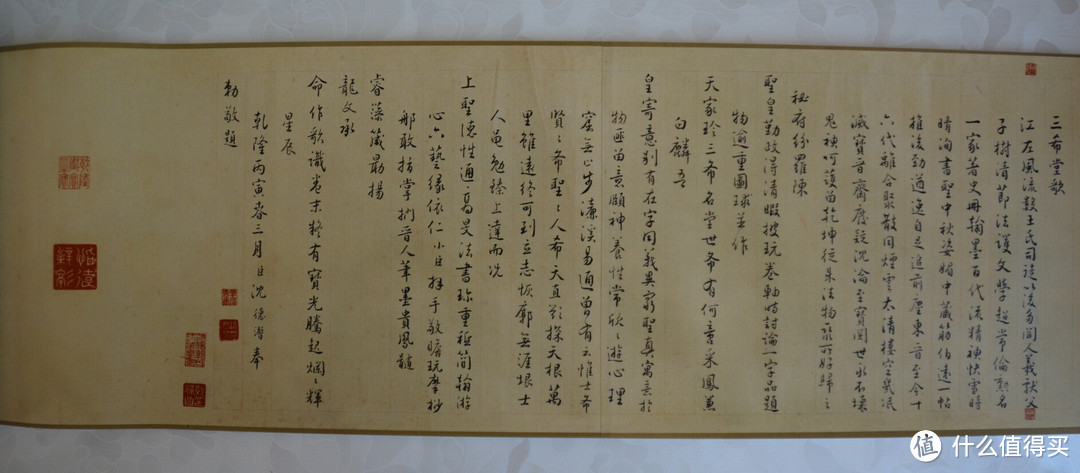 三希堂歌
江左風流數王氏司徒以後多聞人羲獻父
子樹清節法護文學超常倫名
一家著史冊翰墨百代流精神快雪時
晴洵書聖中秋姿媚中藏筋伯遠一帖
推後勁遒逸自足追前塵東晉至今十
六代離合聚散同煙雲太清樓空氣泯
滅寶晉齋廢疑沈淪至寶閱世永不壞
鬼神呵護留乾坤從來法物聚所好歸之
祕府紛羅陳
聖皇勤政得清暇搜玩卷軸時討論一字品題
物逾重圖球並作
天家珍三希名堂世希有何意采鳳兼
白麟吾
皇寄意別有在字同義異窮聖真寓意於
物匪留意頤神養性常欣〻遊心理
窟無止步濂溪易通曾有云惟士希
賢〻希聖〻人希天直欲探天根萬
里雖遠終可到立志恢廓無涯垠士
人黽勉臻上達而況
上聖德性通高旻法書珍重祗簡翰游
心六藝緣依仁小臣拜手敬瞻玩摩抄
那敢指掌捫晉人筆墨貴風髓
睿藻葳蕤揚
龍文承
命作歌識卷末將有寶光騰起爛〻輝
星辰
乾隆丙寅春三月臣沈德潛奉
勅敬題
值 什么值得买